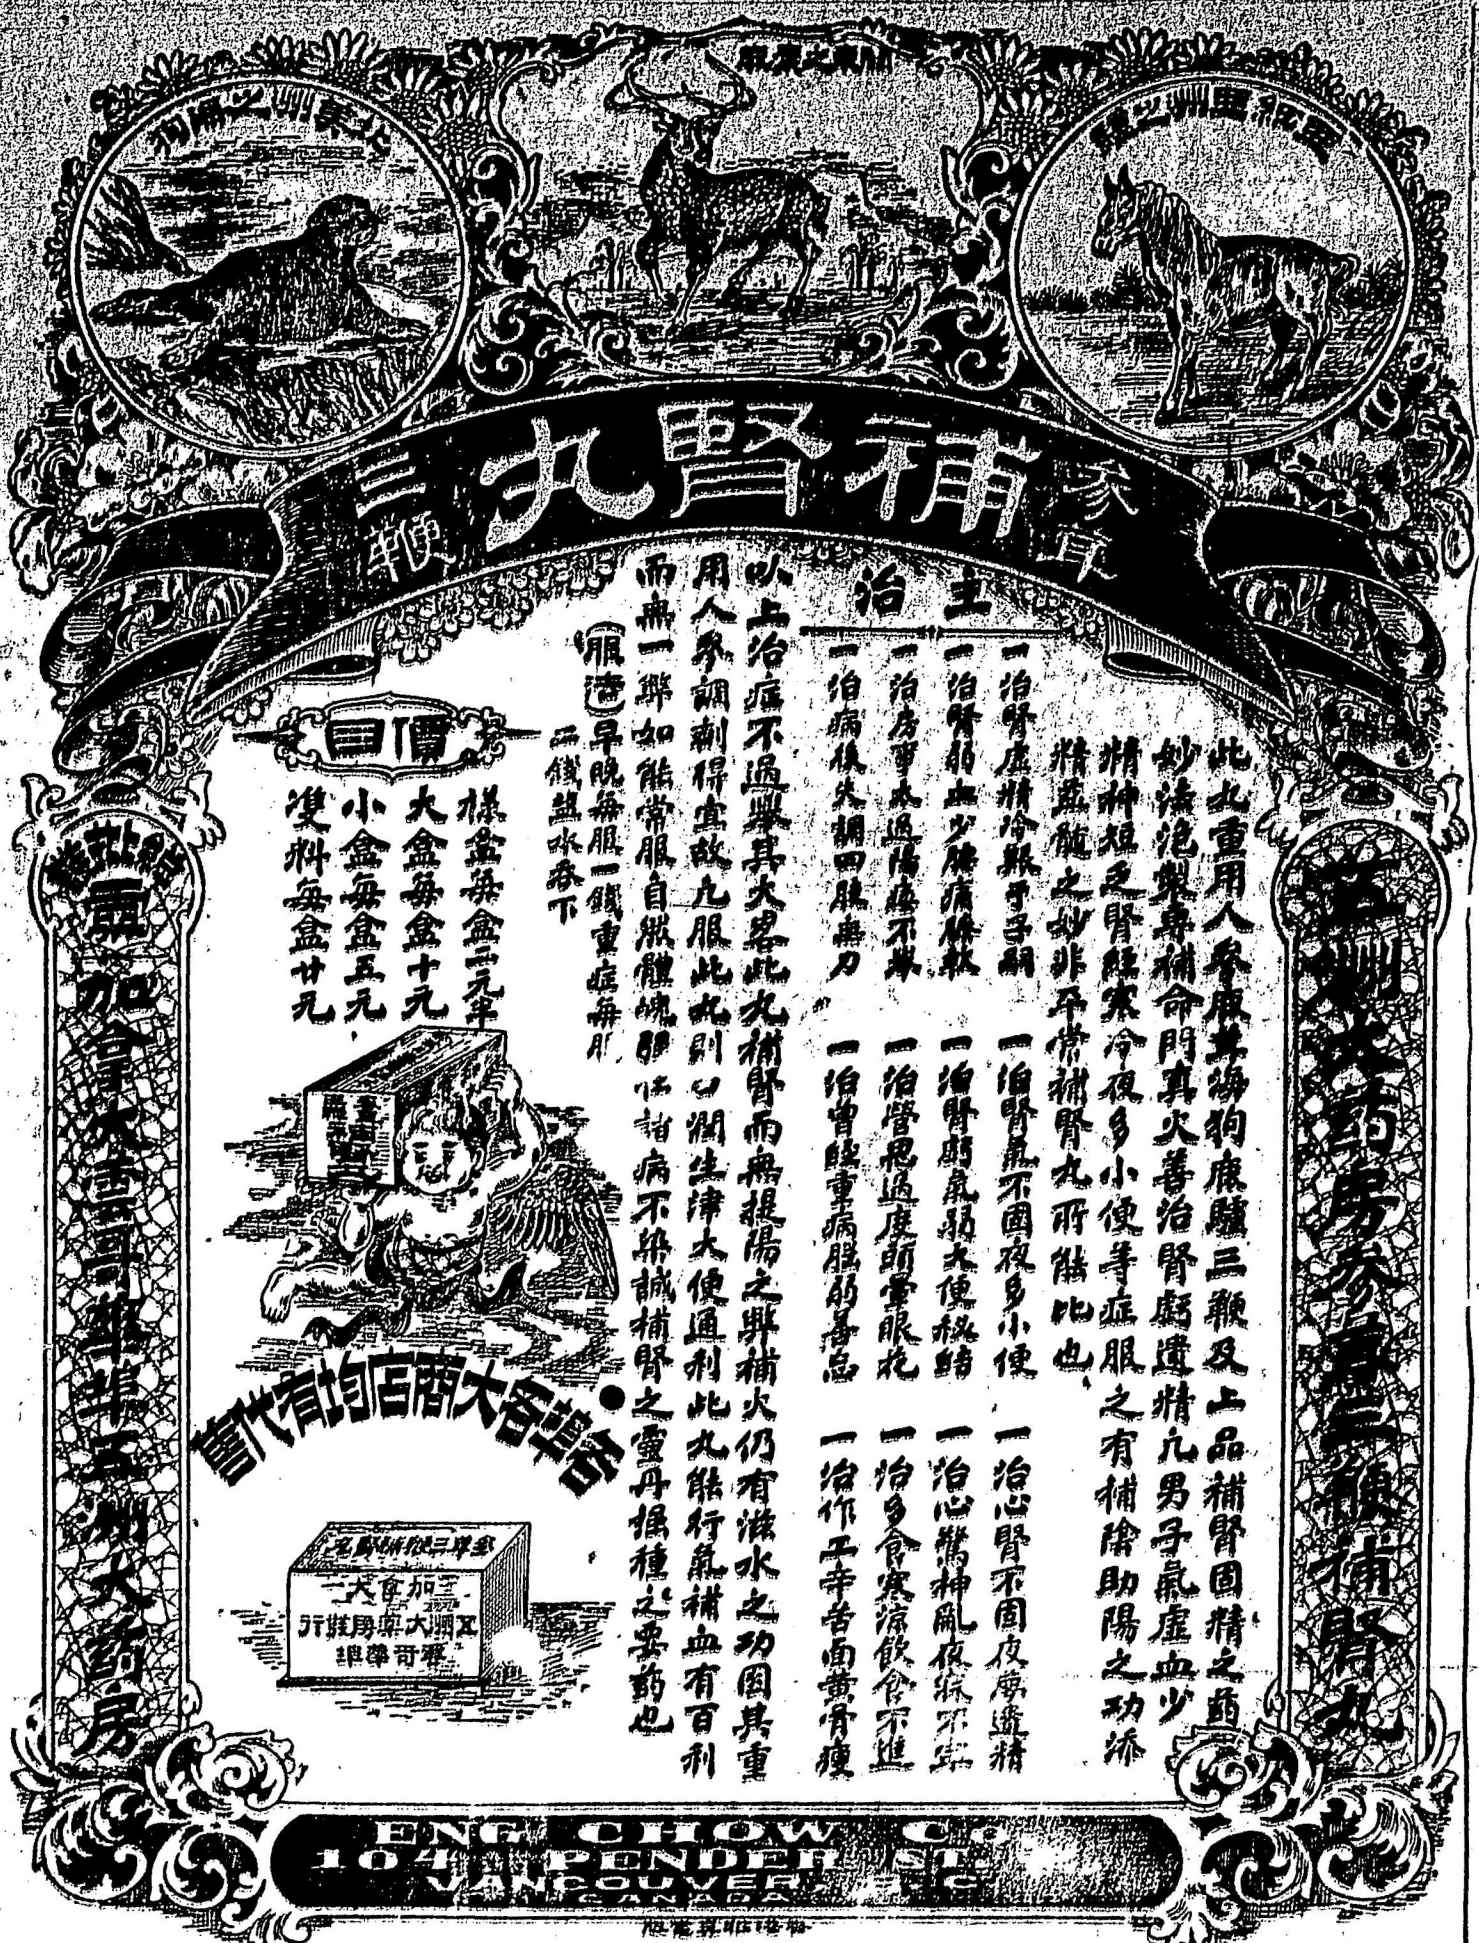 關東之鹿
北美洲之海狗
參茸
補腎丸
三鞭
五洲大药房參茸三鞭補腎丸
此丸重用人參鹿茸海狗鹿驢三鞭及上品補腎固精之药
妙法泡製專補命門真火善治腎虧遺精凢男子氣虛血少
精神短乏腎經寒冷夜多小便等症服之有補陰助陽之功添
精益髓之妙非平常補腎丸所能比也
主治
一治腎虛精冷艱于子嗣
一治腎氣不固夜多小便
一治心腎不固夜夢遺精
一治腎弱血少腰痛腳軟
一治腎虧氣弱大便秘結
一治心驚神亂夜寐不寧
一治房事太過陽痿不舉
一治營思過度頭暈眼花
一治多食寒涼飲食不進
一治病後失調四肢無力
一治曾經重病腦弱善忘
一治作工辛苦面黄骨瘦
以上治症不過舉其大畧此丸補腎而無提陽之弊補火仍有滋水之功因其重
用人參調劑得宜故凢服此丸則心潤生津大便通利此丸能行氣補血有百利
而無一弊如能常服自然體魄强壮諸病不染誠補腎之靈丹振種之要药也
(服法)早晚每服一錢重症每服
二錢盐水吞下
價目
樣盒每盒二元半
大盒每盒十元
小盒每盒五元
雙料每盒廿元
各埠各大商店均有代售
參茸三鞭補腎丸
加拿大
五洲大藥房發行
雲哥華埠
總批發
加拿大雲哥華埠五洲大药房
ENG CHOW Co
104 PENDER ST.
VANCOUVER B.C.
CANADA